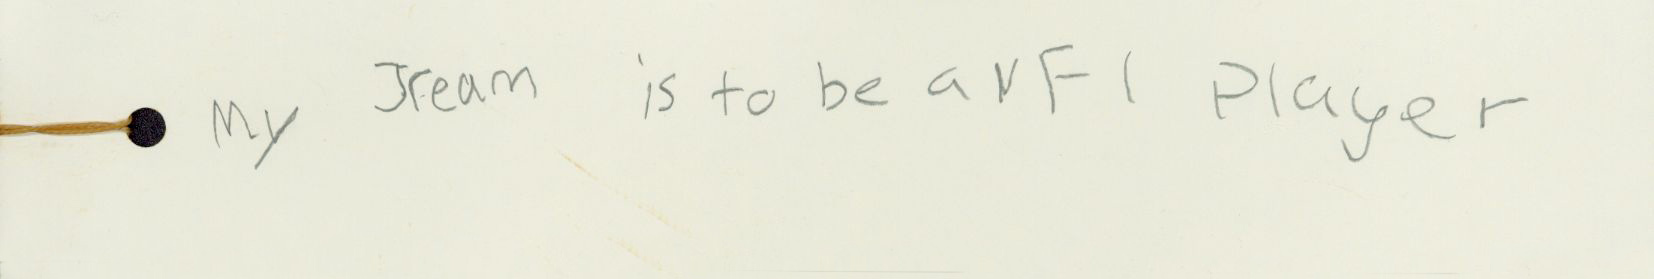 My Dream is to be a NFl Player